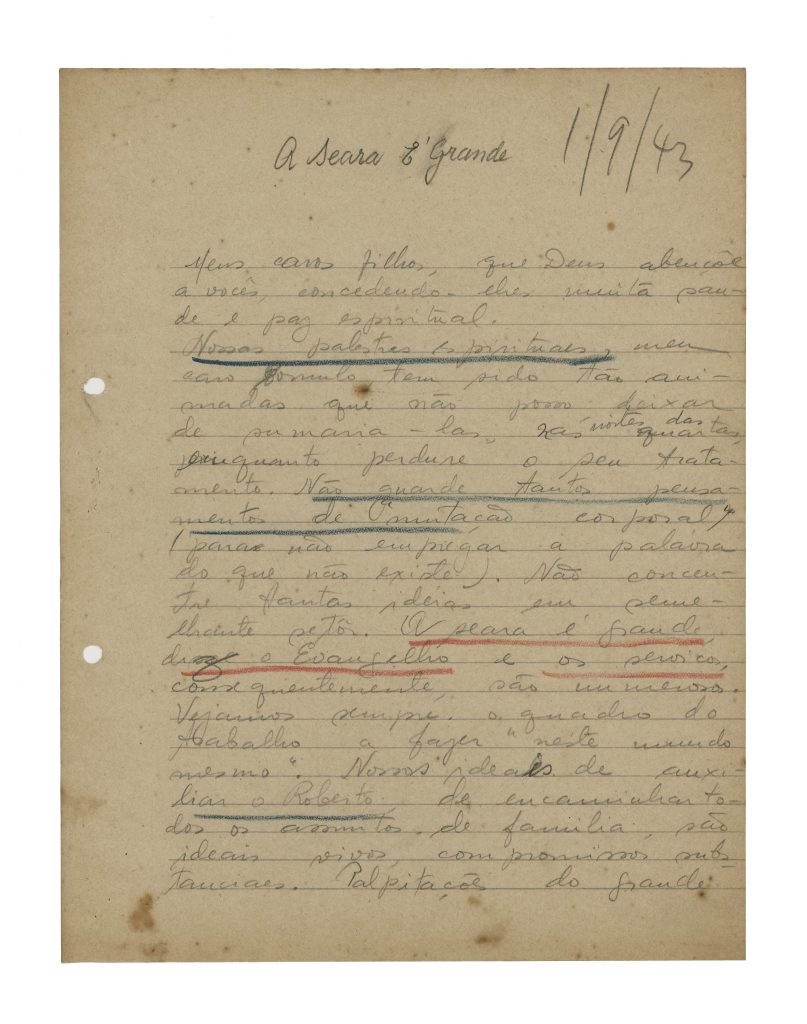 A Seara É Grande
1/9/43
Meus caros filhos, que Deus abençôe
a vocês, concedendo-lhes muita saú-
de e paz espiritual.
Nossas palestras espirituaes, meu
caro Romulo tem sido tão ani-
madas que não posso deixar
de sumaria-las, nas noites das quartas,
enquanto perdure o seu trata-
mento. Não guarde tantos pensa-
mentos de "mutação corporal"
(para não empregar a palavra
do que não existe). Não concen-
tre tantas ideias em seme-
lhante setôr. A seara é grande,
diz o Evangelho e os serviços,
consequentemente, são numerosos.
Vejamos sempre o quadro do
trabalho a fazer "neste mundo
mesmo". Nossos ideais de auxi-
liar o Roberto, de encaminhar to-
dos os assuntos de familia, são
ideais vivos, compromissos subs-
tanciaes. Palpitações do grande